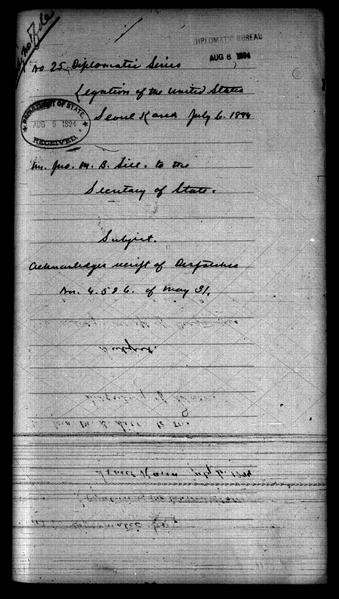 DIPLOMATIC BUREAU
AUG 6 1894
No 25 Diplomatic Series
Legation of the United States
DEPARTMENT OF STATE
AUG 6 1894
RECEIVED
Seoul Korea July 6. 1894
Mr. Jno. M. B. Sill. to the
Secretary of State.
Subject.
Acknowledges receipt of Despatches
Nos. 4. 5 & 6. of May 31.